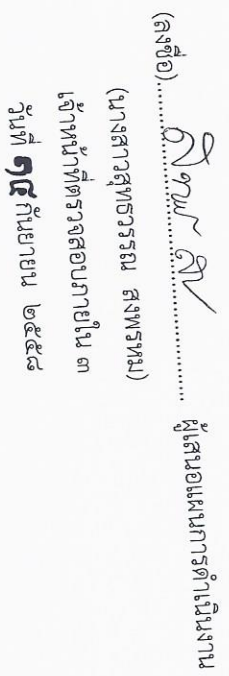 (ลงชื่อ)........................................ผู้เสนอแผนการดำเนินงาน
(นางสาวสุทธวรรณ สงพรหม)
เจ้าหน้าที่ตรวจสอบภายใน ๓
วันที่ ๑๔ กันยายน ๒๕๕๘